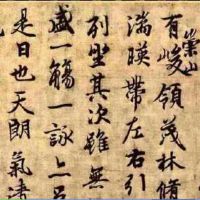 有崇山峻領茂林脩
湍暎帶左右引
列坐其次雖無
盛一觴一詠亦
是日也天朗氣清